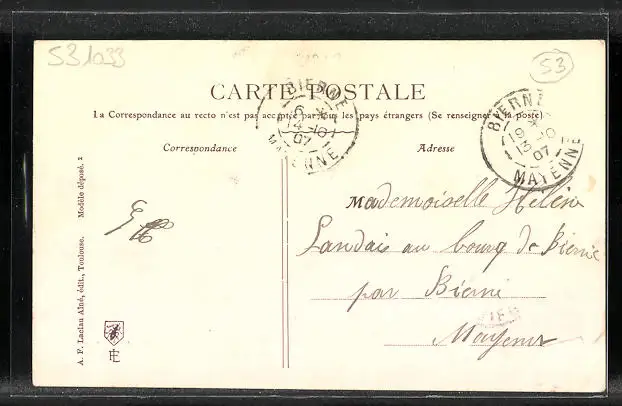 531033
53
CARTE POSTALE
La Correspondance au recto n'est pas acceptée par tous les pays étrangers (Se renseigner à la poste)
BIERNE
6
14 -10
07
MAYENNE
BIERNE
13 -10
07
MAYENNE
Correspondance
Adresse
Mademoiselle Hélène
Landais au bourg de Bierné
par Bierné
Mayenne
A. F. Laclau Aîné, édit., Toulouse. Modèle déposé. 2